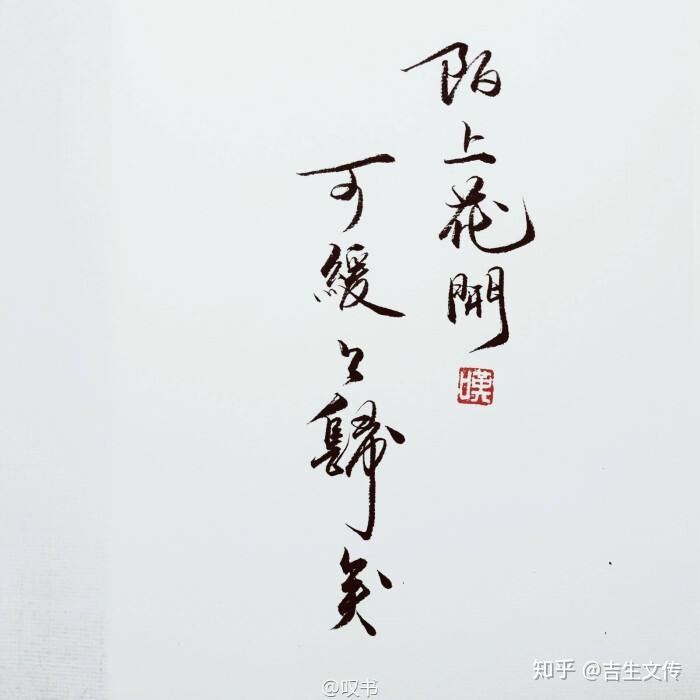 陌上花開
可緩々歸矣
嘆
@叹书
知乎 @吉生文传